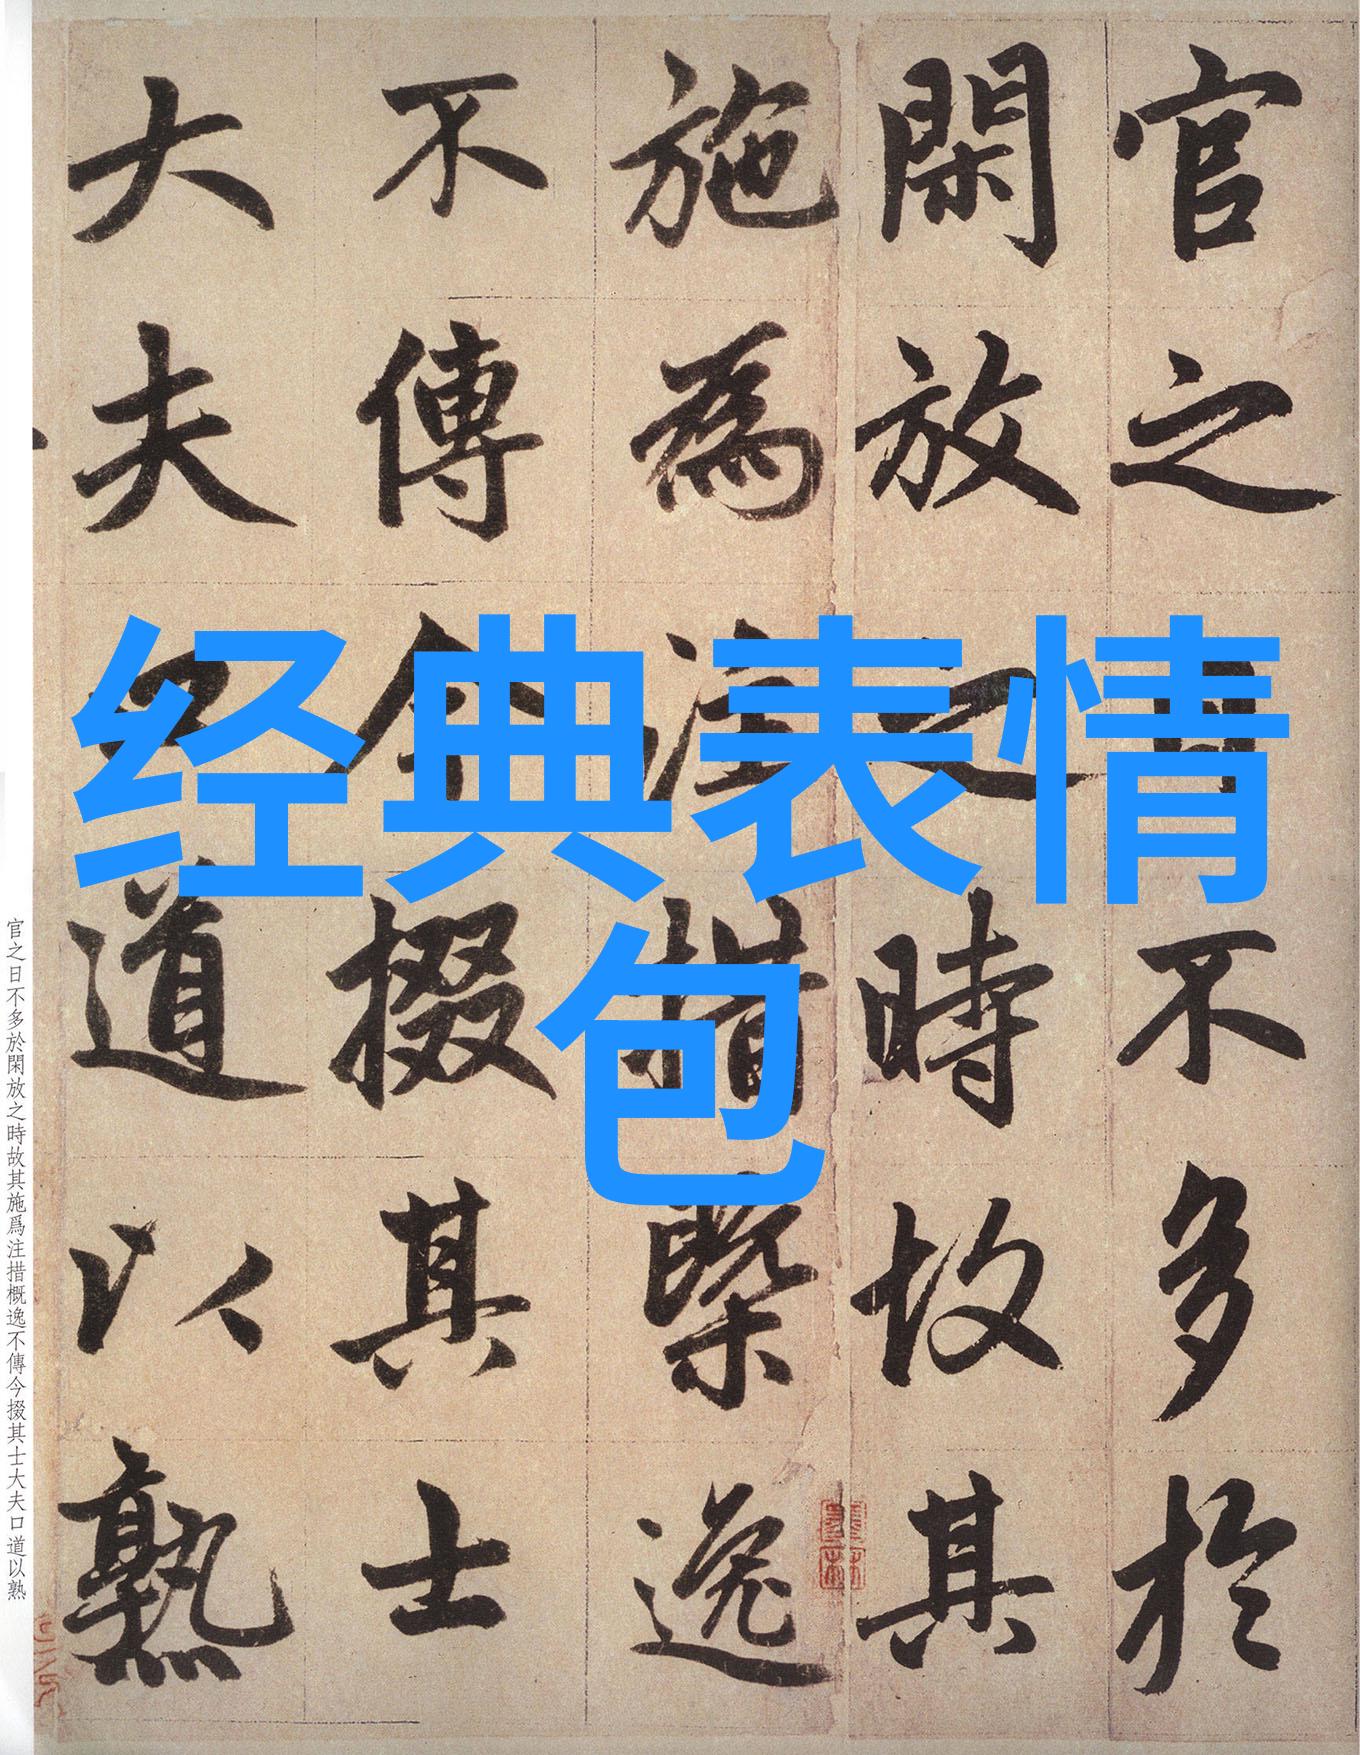 官之日不多於
閑放之時故其
施為注措槩逸
不傳今掇其士
大夫口道以熟
经典表情
包
官之日不多於閑放之時故其施爲注措概逸不傳今掇其士大夫口道以熟